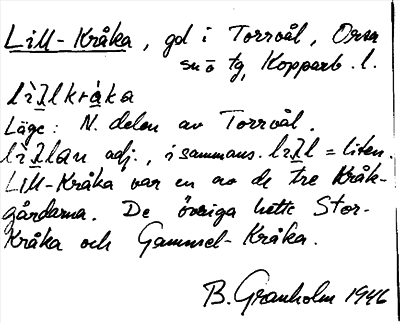 Lill-Kråka, gd i Torrvål, Orsa
sn o tg, Kopparb. l.
lìllkràka
Läge: N. delen av Torrvål.
lìllan adj., i sammans. lìll = liten.
Lill-Kråka var en av de tre Kråk-
gårdarna. De övriga hette Stor-
Kråka och Gammel-Kråka.
B. Granholm 1946